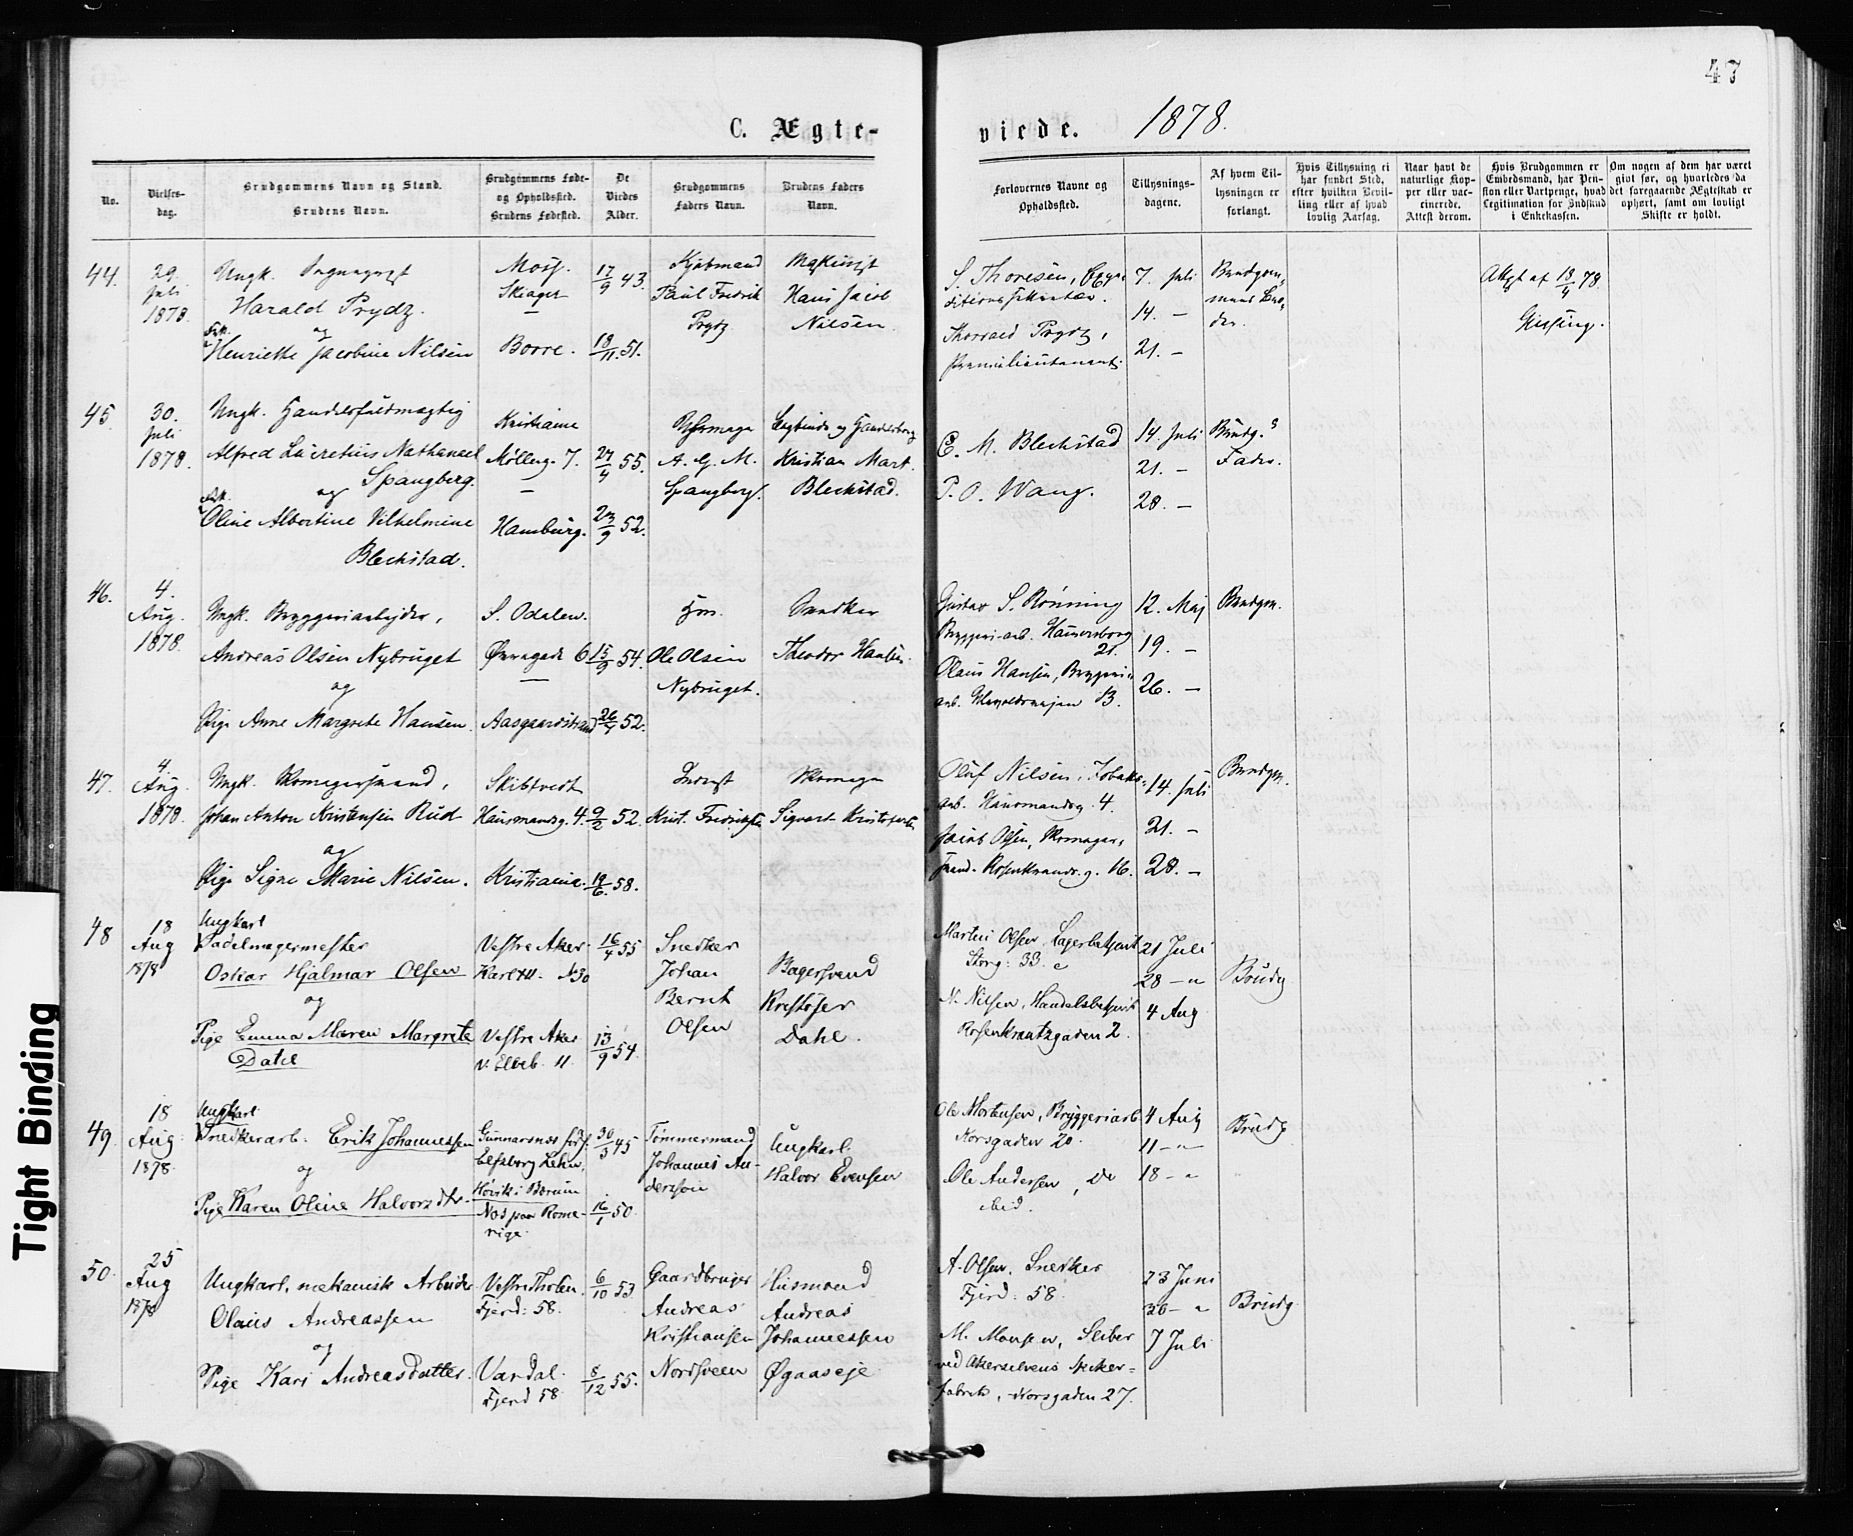 47
C. Ægte-
viede. 1878.
No.
Vielses-
dag.
Brudgommens Navn og Stand.
Brudens Navn.
Brudgommens Føde-
og Opholdssted.
Brudens Fødested.
De
Viedes
Alder.
Brudgommens
Faders Navn.
Brudens Faders
Navn.
Forlovernes Navne og
Opholdssted.
Tillysnings-
dagene.
Af hvem Til-
lysningen er
forlangt.
Hvis Tillysning ei
har fundet Sted,
efter hvilken Bevil-
ling eller af hvad
lovlig Aarsag.
Naar havt de
naturlige Kop-
per eller vac-
cinerede.
Attest derom.
Hvis Brudgommen er
Embedsmand, har Pen-
sion eller Vartpenge, hvad
Legitimation for Indskud
i Enkekassen.
Om nogen af dem har været
gift før, og hvorledes da
det foregaaende Ægteskab er
ophørt, samt om lovligt
Skifte er holdt.
44.
29.
Juli
1878.
Ungk. Sogneprest
Harald Prydz.
og
Frk.
Henriette Jacobine Nilsen
Moss.
Skiager
Borre.
17/9 43.
18/11 51.
Kjøbmand
Paul Fredrik
Prydz
Maskinist
Hans Jacob
Nilsen
S. Thoresen,
Thorvald Prydz,
Premierlieutenant.
7. Juli
14. –
21. –
Brudgom-
mens Bro-
der.
Attest af 18/4 78.
45.
30.
Juli
1878.
Ungk. Handelsfuldmægtig
Alfred Lucretius Nathanael
Spangberg.
og
Frk.
Oline Albertine Vilhelmine
Bleckstad.
Kristiania
Møllerg. 7.
Hamburg.
27/4 55.
27/9 52.
Uhrmager
A. G. M.
Spangberg.
Kristian Mart.
Bleckstad.
C. M. Bleckstad
P. O. Wang.
14. Juli
21. –
28. –
Brudg.s
Fader.
46.
4.
Aug.
1878.
Ungk. Bryggeriarbejder,
Andreas Olsen Nybruget
og
Pige Anne Margrete Hansen.
S. Odalen.
Øvregade 6
Aasgaardstrand
15/9 54.
26/4 52.
Hm.
Ole Olsen
Nybruget.
Snedker
Theodor Hansen.
Gustav S. Rønning
Bryggeri-arb. Hausersborg
21.
Olaus Hansen, Bryggeri-
12. Maj
19. –
26. –
Brudgm.
47.
4.
Aug.
1878.
Ungk. Skomagersvend,
Johan Anton Kristensen Rud
og
Pige Signe Marie Nilsen.
Skibtvedt
Hausmandsg. 4.
Kristiania.
9/2 52.
19/6 58.
Inderst
Krist. Fredriksen
Skomager
Sigvart Kristofersen
Oluf Nilsen, Tobaks-
arb. Hausmandsg. 4.
Jacob Olsen, Skomager-
svend. Rosenkrandsg. 16.
14. Juli
21. –
28. –
Brudgm.
48
18
Aug
1878
Ungkarl
Sadelmagermester
Oskar Hjalmar Olsen
og
Pige Emma Maren Margrete
Dahl
Vestre Aker
Karl XII. N 30
Vestre Aker
v. Elveb. 11.
16/4 55
13/9 54.
Snedker
Johan
Bernt
Olsen
Bagersvend
Kristofer
Dahl.
Martin Olsen, Lagerbetjent
Storg: 33. c
N. Nilsen, Handelsbetjent
Rosenkrantzgaden 2.
21 Juli
28 – "
4 Aug
Brudg
49.
18
Aug.
1878.
Ungkarl
Snedkerarb. Erik Johannessen
og
Pige Karen Oline Halvorsdtr.
Gunnarsnæs fods.
Elfsborg Lehn.
Høvik i Bærum
Næs paa Rome-
rige.
30/3 45
16/1 50.
Tømmermand
Johannes An-
dersson
Ungkarl
Halvor Evensen
Ole Mortensen, Bryggeriarb
Korsgaden 20.
Ole Andersen, Do
ibid.
4 Aug
11 – "
18 – "
Brudg
50.
25
Aug
1878
Ungkarl, mekanisk Arbeider
Olaus Andreassen
og
Pige Kari Andreasdatter.
Vestre Thoten.
Fjerd: 58.
Vardal.
Fjerd 58
6/10 53
8/12 55.
Gaardbruger
Andreas
Kristiansen
Nordsveen
Husmand
Andreas
Johannessen
Øgaaseje
A. Olsen. Snedker
Fjerd: 58.
M. Monsen, Sliber
ved Akerselvens Spiker-
fabrik, Korsgaden 27.
23 Juni
30 – "
7 Juli
Brudg.
Tight Binding